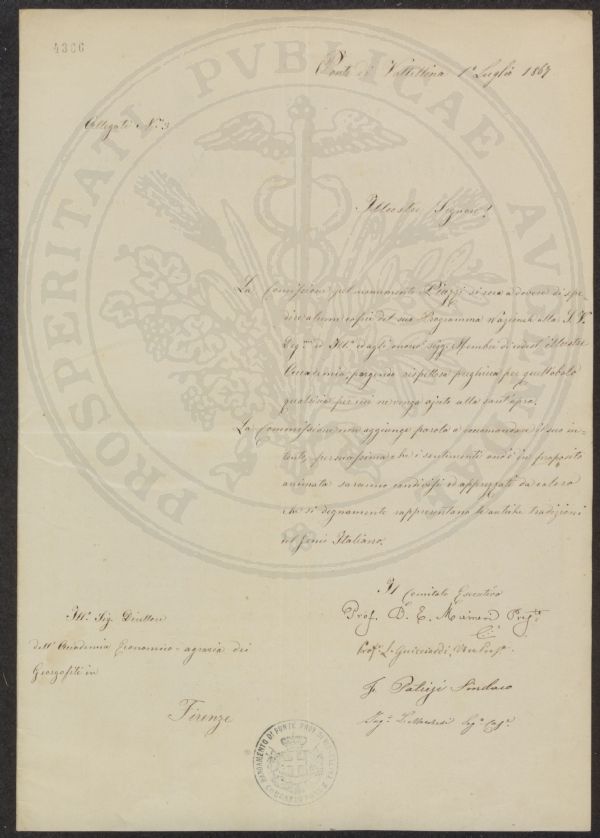 4386
PROSPERITATI PVBLICAE AVGENDAE
Ponte di Valtellina 1° Luglio 1867
Allegati N.° 3
Illustre Signore!
La Commissione pel monumento Piazzi si reca a dovere di spe-
dire alcune copie del suo Programma nazionale alla S. V.
ed agli onor. sigg. Membri di codest' illustre
Accademia, porgendo rispettosa preghiera per quell'obolo
qualsiasi per cui ne venga ajuto alla sant'opra.
La Commissione non aggiunge parola a raccomandare il suo in-
tento, persuasissima che i sentimenti ond'è in proposito
animata saranno condivisi ed apprezzati da coloro
che sì degnamente rappresentano le antiche tradizioni
del Genio Italiano.
Il Comitato Esecutivo
Prof. D. E.
Prof. L. Guicciardi,
Sindaco
Ill. Sig. Direttore
dell'Accademia Economico-agraria dei
Georgofili in
Firenze
MANDAMENTO DI PONTE